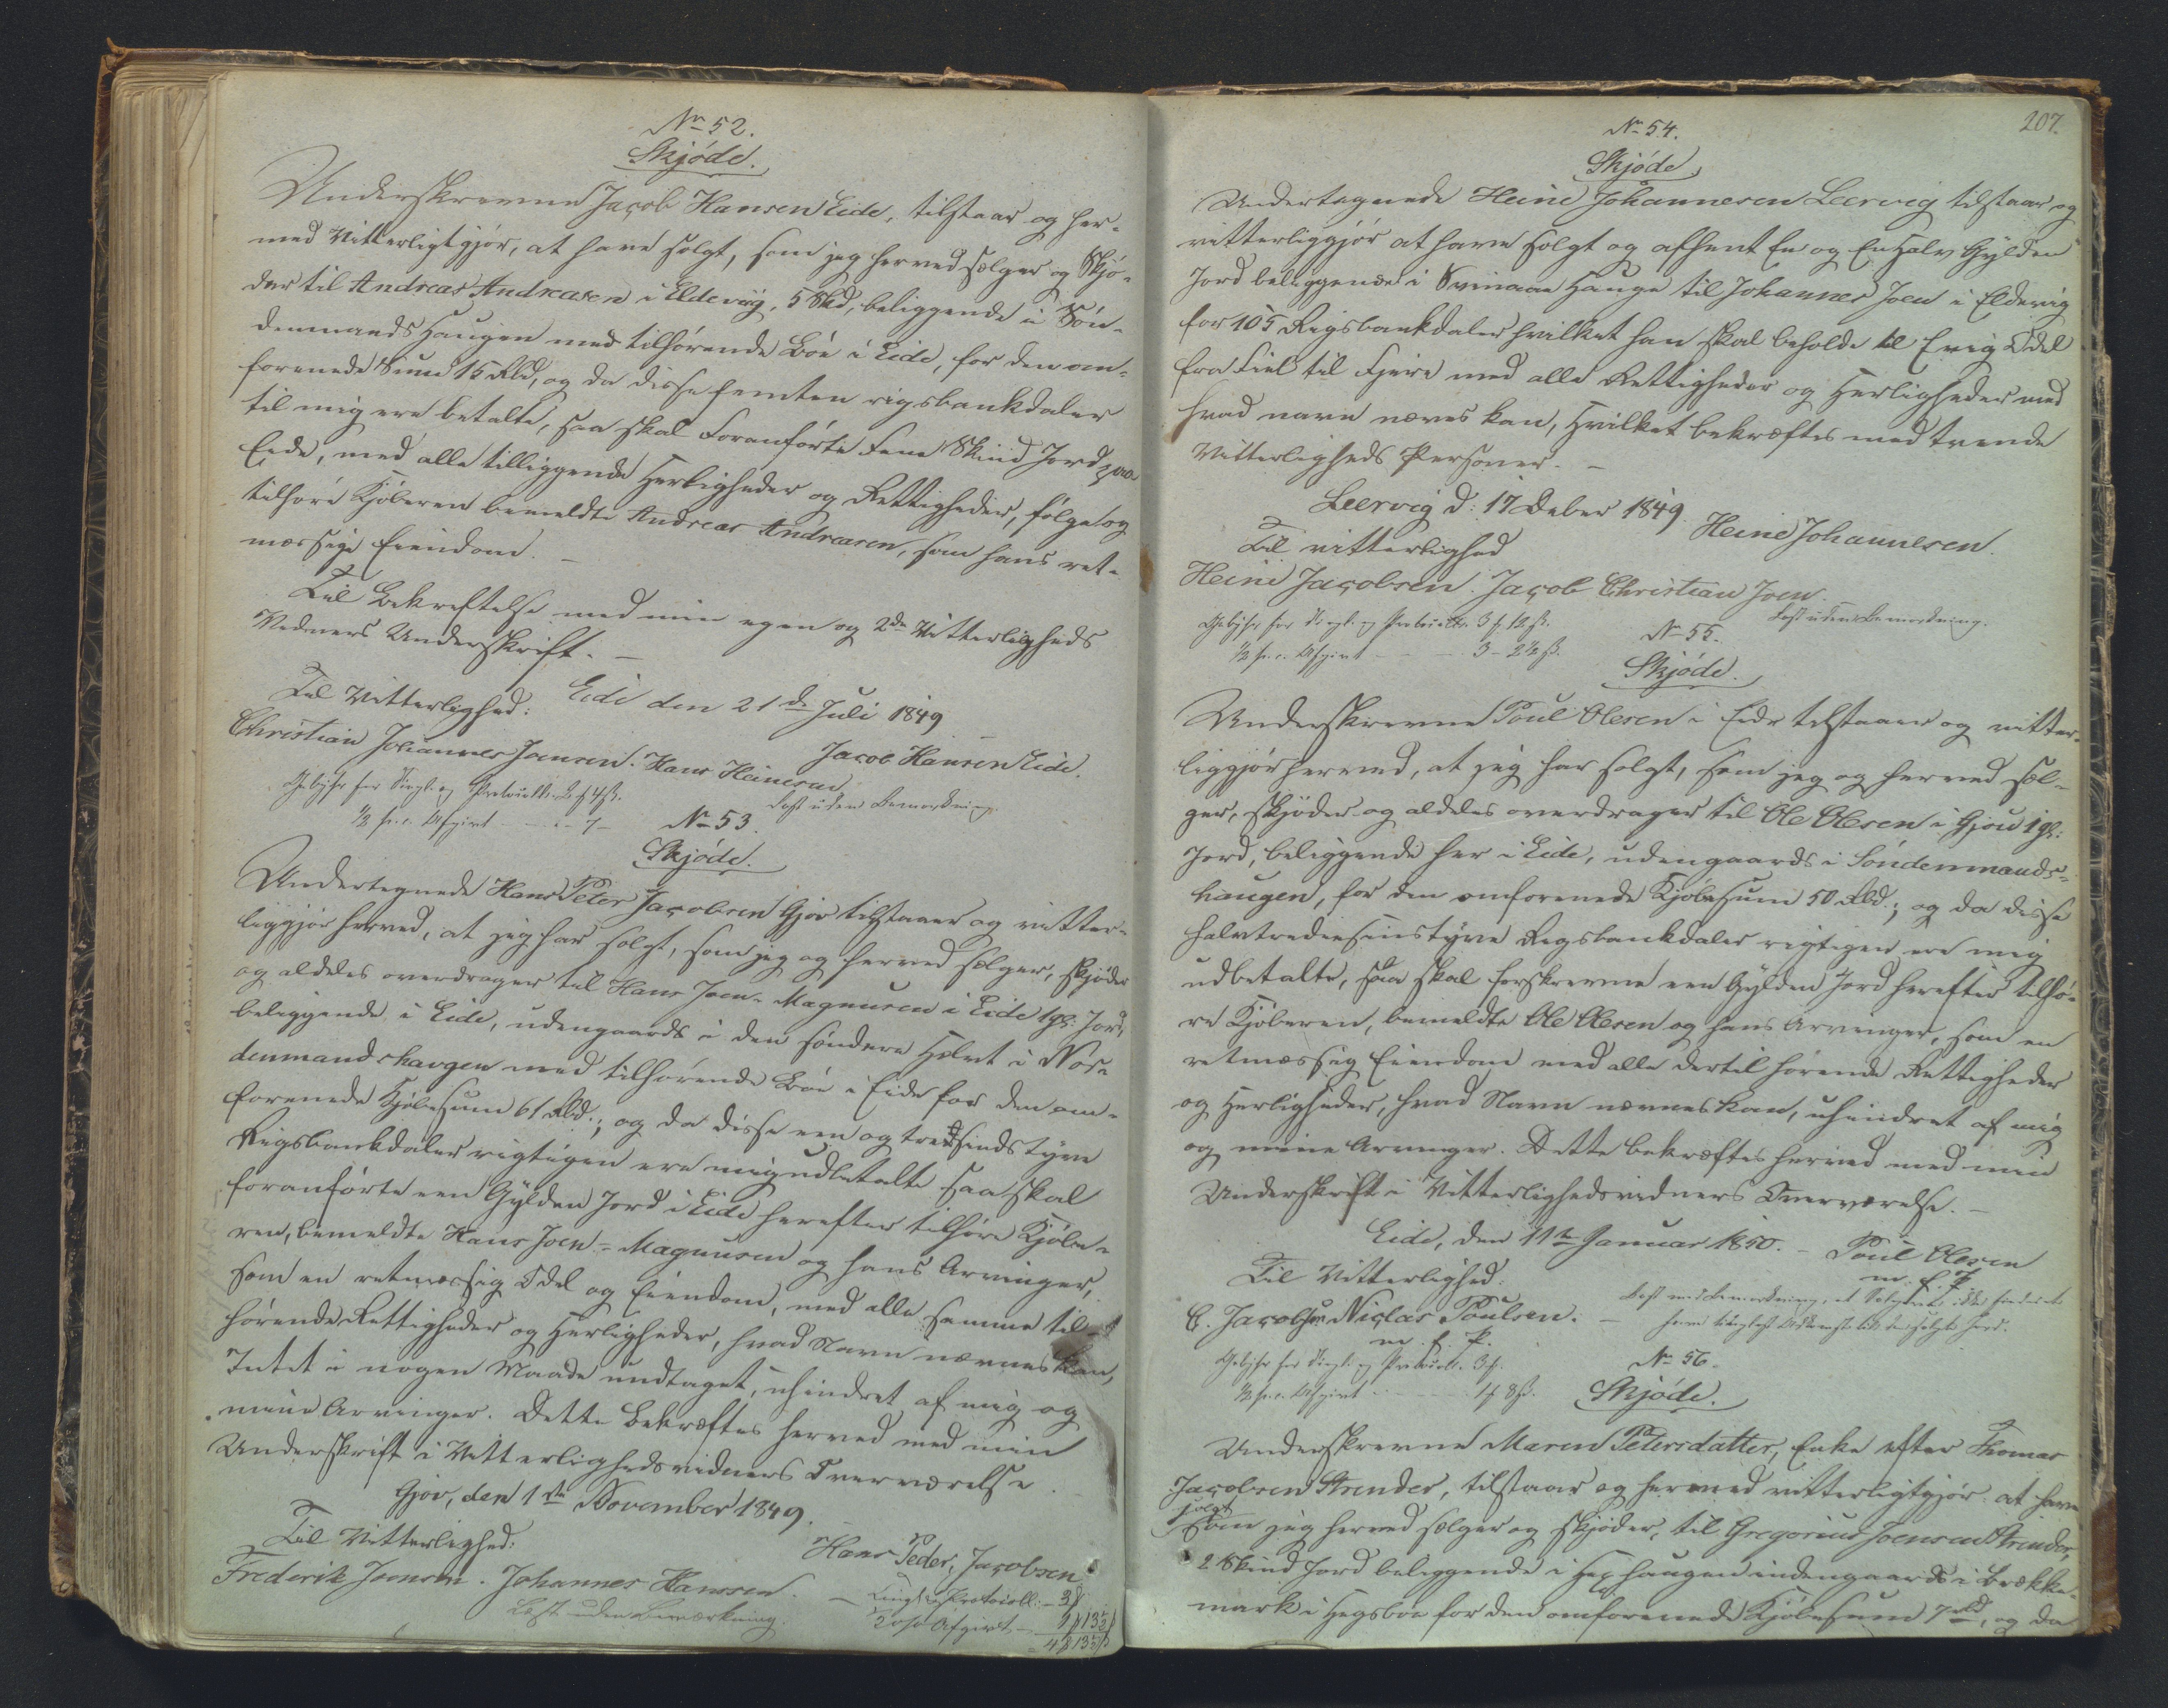 No 52.
Skjöde.
Underskrevne Jacob Hansen Eide, tilstaar og her-
med Vitterligtgjør, at have solgt, som jeg herved sælger og Skjö-
der til Andreas Andreasen i Eldevig, 5 Skd, beliggende i Sön-
denmands Haugen med tilhørende Böe i Eide, for den om-
forenede Sum 15 Rbd, og da disse femten rigsbankdaler
til mig ere betalte, saa skal foranførte fem Skind Jord paa
Eide, med alle tilliggende Herligheder og Rettigheder, følge og
tilhøre Kjøberen bemeldte Andreas Andreasen, som hans ret-
mæssige Eiendom. –
Til Bekræftelse med min egen og 2de Vitterligheds
Vidners Underskrift. –
Eide den 21de Juli 1849
Til Vitterlighed:
Jacob Hansen Eide.
Christian Johannes Joensen. Hans Heinesen
Gebyhr for Tingl. og Protocoll. 2 f 4 ß.
Læst uden Bemærkning.
½ pr. c. Afgivt - - - 7 -
No 53.
Skjöde.
Undertegnede Hans Peter Jacobsen Gjov tilstaaer og vitter-
liggjör herved, at jeg har solgt, som jeg og herved sælger, skjøder
og aldeles overdrager til Hans Joen- Magnusen i Eide 1 gl: Jord,
beliggende i Eide, udengaards i den söndere Hælvt i Nor-
denmandshavgen med tilhörende Böe i Eide for den om-
forenede Kjøbesum 61 Rbd.; og da disse een og tresindstyve
Rigsbankdaler rigtigen ere mig udbetalte saa skal
foranförte een Gylden Jord i Eide herefter tilhöre Kjøbe-
ren, bemeldte Hans Joen- Magnusen og hans Arvinger,
som en retmæssig Odel og Eiendom, med alle samme til-
hørende Rettigheder og Herligheder, hvad Navn nævnes kan,
Intet i nogen Maade undtaget, uhindret af mig og
mine Arvinger. Dette bekræftes herved med min
Underskrift i Vitterlighedsvidners Overværelse.
Gjov, den 1ste November 1849.
Til Vitterlighed:
Hans Peder, Jacobsen
Frederik Joensen. Johannes Hanssen. –
Tingl. og Protocoll: - 3 ß
Læst uden Bemærkning.
Afgivt - 1 ß 13½ ß
4 ß 13½ ß
207.
No 54.
Skjöde
Undertegnede Heine Johannesen Leervig tilstaar og
vitterliggjör at have solgt og afhent En og En Halv Gylden
Jord beliggende i Svinaae Hauge til Johannes Joen i Eldevig
for 105 Rigsbankdaler hvilket han skal beholde til Evig Odel
fra Field til Fjere med alle Rettigheder og Herligheder med
hvad navn nævnes kan, Hvilket bekræftes med tvende
Vitterligheds Personer. –
Leervig d: 17 Deber 1849.
Heine Johannesen.
Til vitterlighed
Heine Jacobsen. Jacob Christian Joen.
Læst uden Bemærkning.
Gebyhr for Tingl. og Protocoll. 3 f 12 ß.
½ pr. c. Afgivt - - - 3 - 2½ ß.
No 55.
Skjöde.
Underskrevne Poul Olesen i Eide tilstaaer og vitter-
liggjör herved, at jeg har solgt, som jeg og herved sæl-
ger, skjøder og aldeles overdrager til Ole Olesen i Gjow 1 gl:
Jord, beliggende her i Eide, udengaards i Söndenmands-
haugen, for den omforenede Kjøbesum 50 Rbd.; og da disse
halvtrediesindstyve Rigsbankdaler rigtigen ere mig
udbetalte, saa skal forskrevne een Gylden Jord herefter tilhö-
re Kjøberen, bemeldte Ole Olesen og hans Arvinger, som en
retmæssig Eiendom med alle dertil hørende Rettigheder
og Herligheder, hvad Navn nævnes kan, uhindret af mig
og mine Arvinger. Dette bekræftes herved med min
Underskrift i Vitterlighedsvidners Overværelse. –
Eide, den 11te Januar 1850. –
Poul Olesen
m. f. P.
Til Vitterlighed:
C. Jacobsen Niclas Poulsen. –
m. f. P.
Læst med Bemærkning, at Sælgeren ikke findes at
have tinglæst Adkomst til den solgte Jord.
Gebyhr for Tingl. og Protocoll. 3 f.
½ pr. c. Afgivt - - - 1 f 8 ß.
No 56.
Skjöde.
Underskrevne Maren Petersdatter, Enke efter Thomas
Jacobsen Strender, tilstaar og hermed vitterligtgjør at have
solgt
som jeg herved sælger og skjøder, til Gregorius Joensen Strender,
2 Skind Jord beliggende i haugen indengaards i Brække-
mark i Hegsböe for den omforenede Kjøbesum 7 rbd, og da